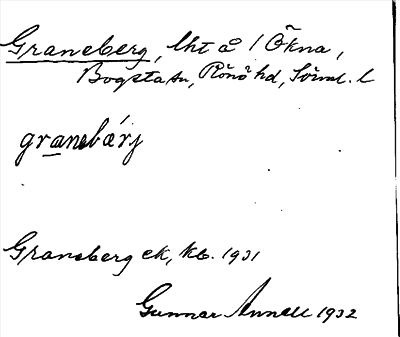 Graneberg, lht å 1 Ökna,
Bogsta sn, Rönö hd, Södml. l
granebärj
Graneberg ek, kb. 1931
Gunnar Annell 1932